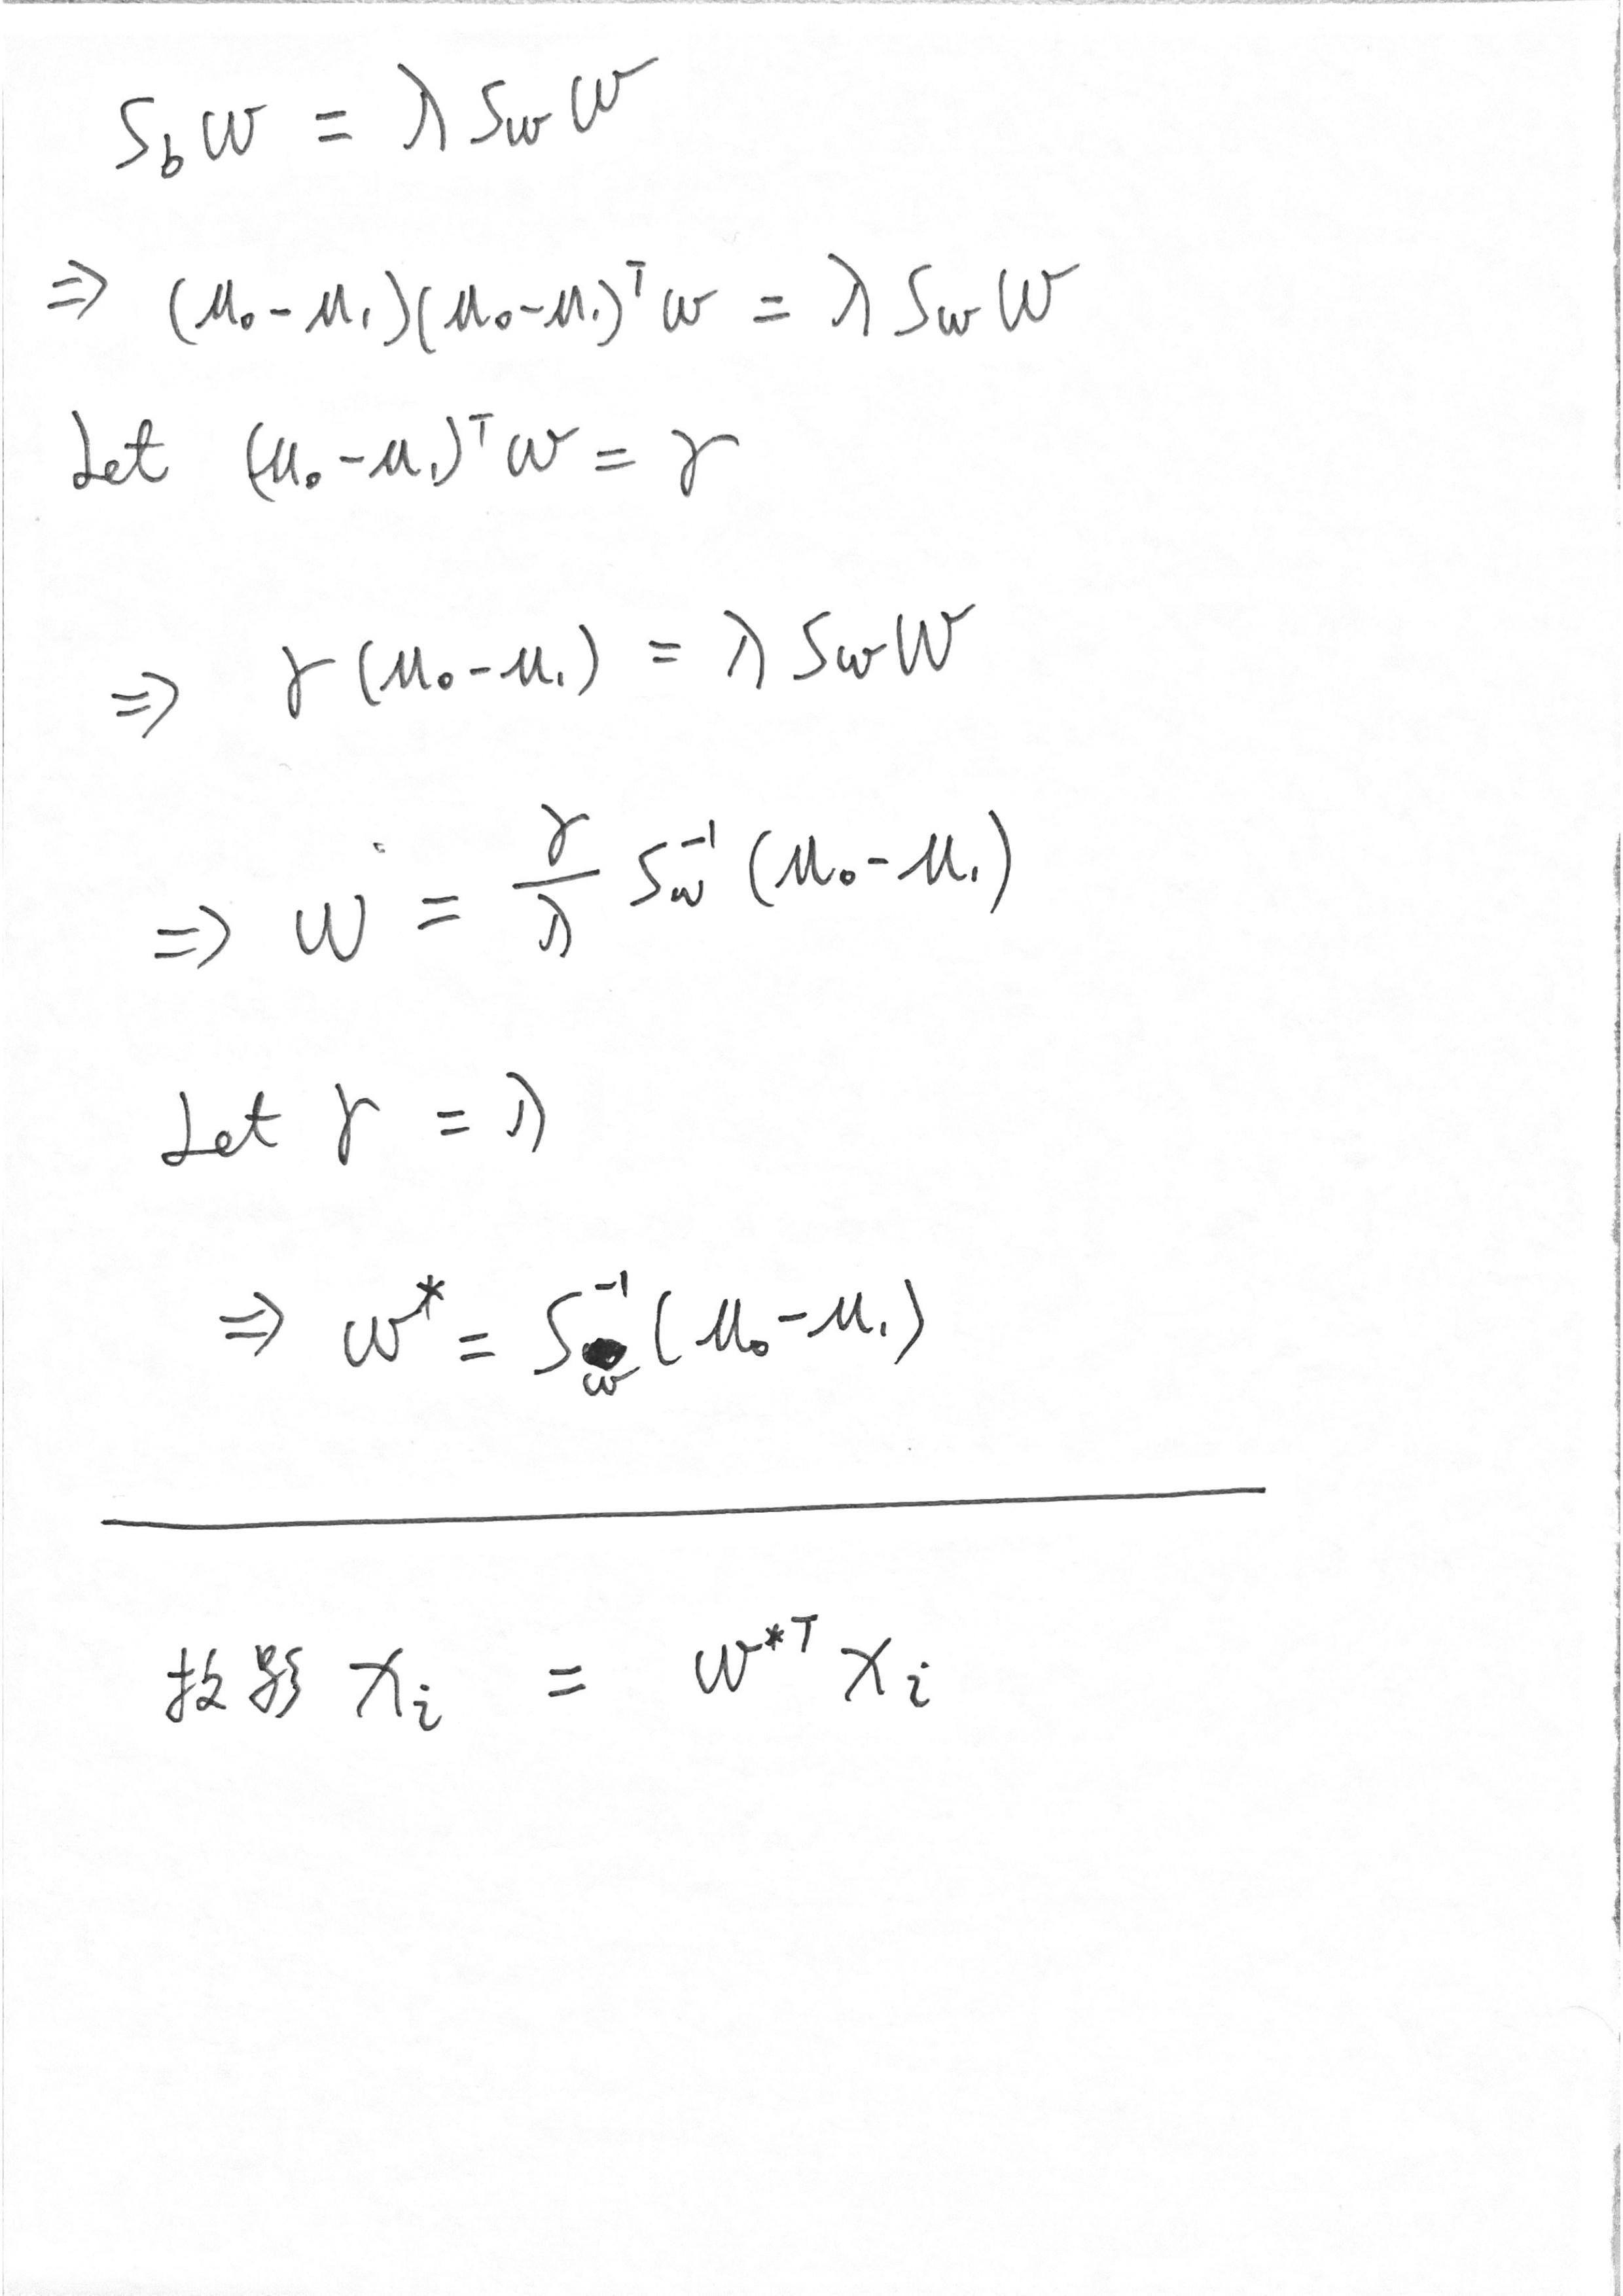 S_b w = λ S_w w
⇒ (μ₀ - μ₁)(μ₀ - μ₁)ᵀ w = λ S_w w
Let (μ₀ - μ₁)ᵀ w = γ
⇒ γ (μ₀ - μ₁) = λ S_w w
⇒ w = γ/λ S_w⁻¹ (μ₀ - μ₁)
Let γ = λ
⇒ w* = S_w⁻¹ (μ₀ - μ₁)
投影 x_i = w*ᵀ x_i